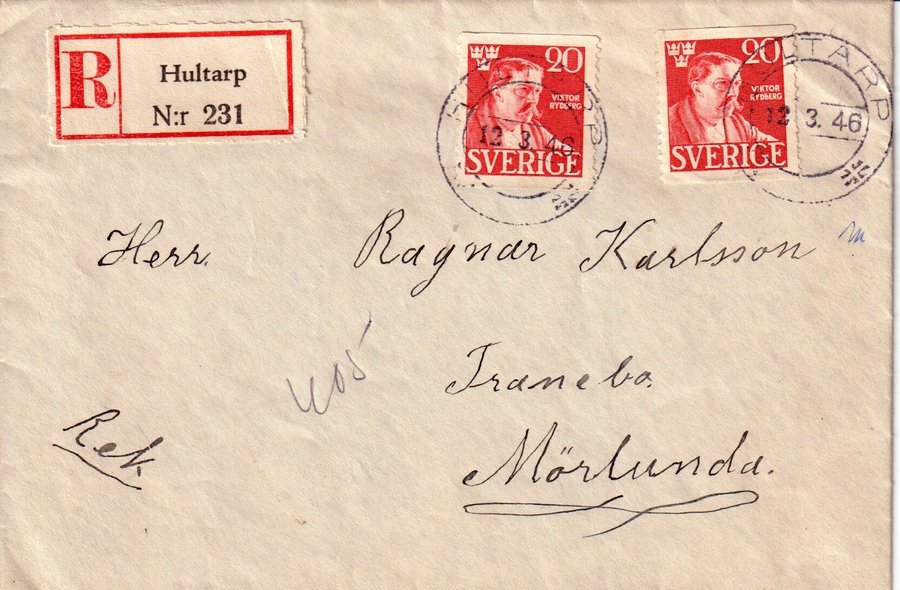 R
Hultarp
N:r 231
20
VIKTOR
RYDBERG
SVERIGE
HULTARP
12 3. 46
20
VIKTOR
RYDBERG
SVERIGE
HULTARP
12 3. 46
Herr. Ragnar Karlsson
405
Tranebo.
Rek
Mörlunda.